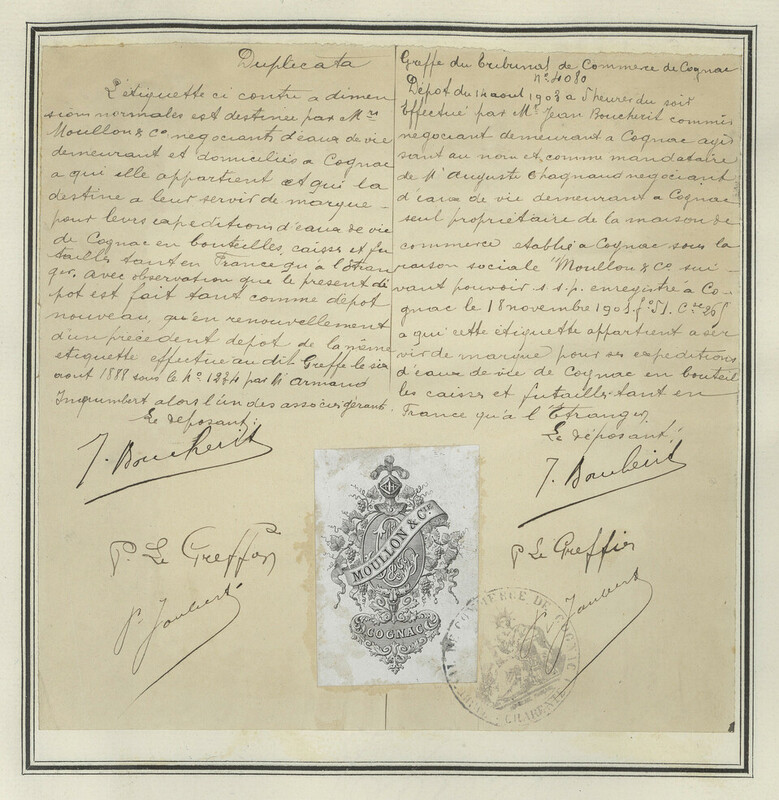 Duplicata
L'étiquette ci contre a dimen
sion normales est destinée par Mrs
Moullon & Co negociants d'eaux de vie
demeurant et domiciliés a Cognac
a qui elle appartient et qui la
destine a leur servir de marque
pour leurs expeditions d'eaux de vie
de Cognac en bouteilles, caisses et fu
tailles tant en France qu'à l'étran
ger. Avec observation que le présent dé
pot est fait tant comme dépôt
nouveau, qu'en renouvellement
d'un précédent depot de la même
etiquette effectué au dit Greffe le six
aout 1888 sous le No 1234 par M Armand
Imgumbert alors l'un des associés gérants
Le déposant.
J. Boucherit
P. Le Greffier
P. Joubert
Greffe du Tribunal de Commerce de Cognac
No 4080
Dépot du 14 aout 1903 a 5 heures du soir
Effectué par Mr Jean Boucherit commis
negociant demeurant a Cognac agis
sant au nom et comme mandataire
de Mr Auguste Chagnaud negociant
d'eaux de vie demeurant a Cognac
seul propriétaire de la maison de
commerce etablie a Cognac sous la
raison sociale "Moullon & Co sui
vant pouvoir s.s.p. enregistré à Co
gnac le 18 novembre 1901 fo 51. Cse 265
a qui cette étiquette appartient a ser
vir de marque pour ses expeditions
d'eaux de vie de Cognac en bouteil
les caisses et futailles tant en
France qu'a l'Etranger
Le déposant.
J. Boucherit
P Le Greffier
P. Joubert
MOULLON & CIE
COGNAC
DE COMMERCE DE COGNAC
CHARENTE